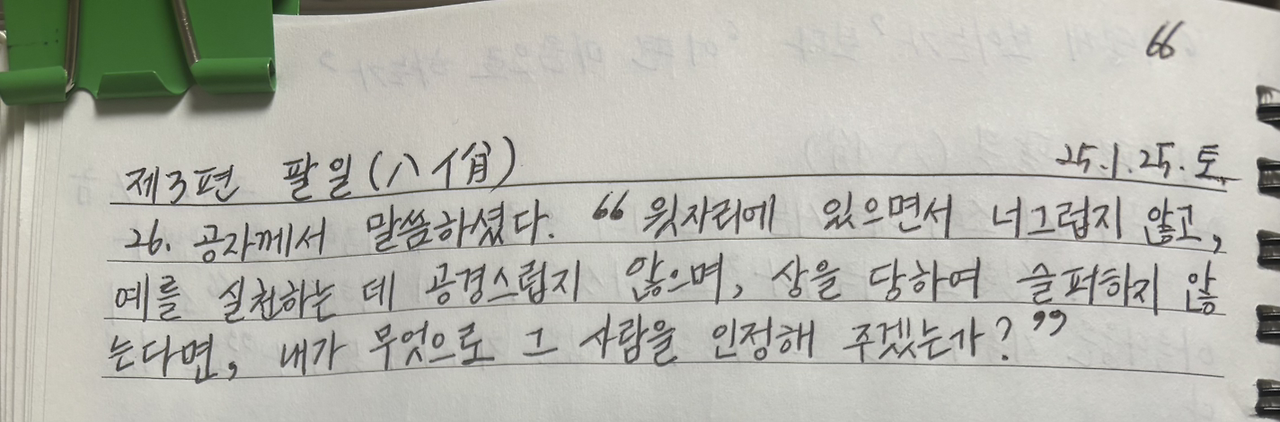 66
제3편 팔일(八佾) 25.1.25.토
26. 공자께서 말씀하셨다. “윗자리에 있으면서 너그럽지 않고,
예를 실천하는 데 공경스럽지 않으며, 상을 당하여 슬퍼하지 않
는다면, 내가 무엇으로 그 사람을 인정해 주겠는가?”